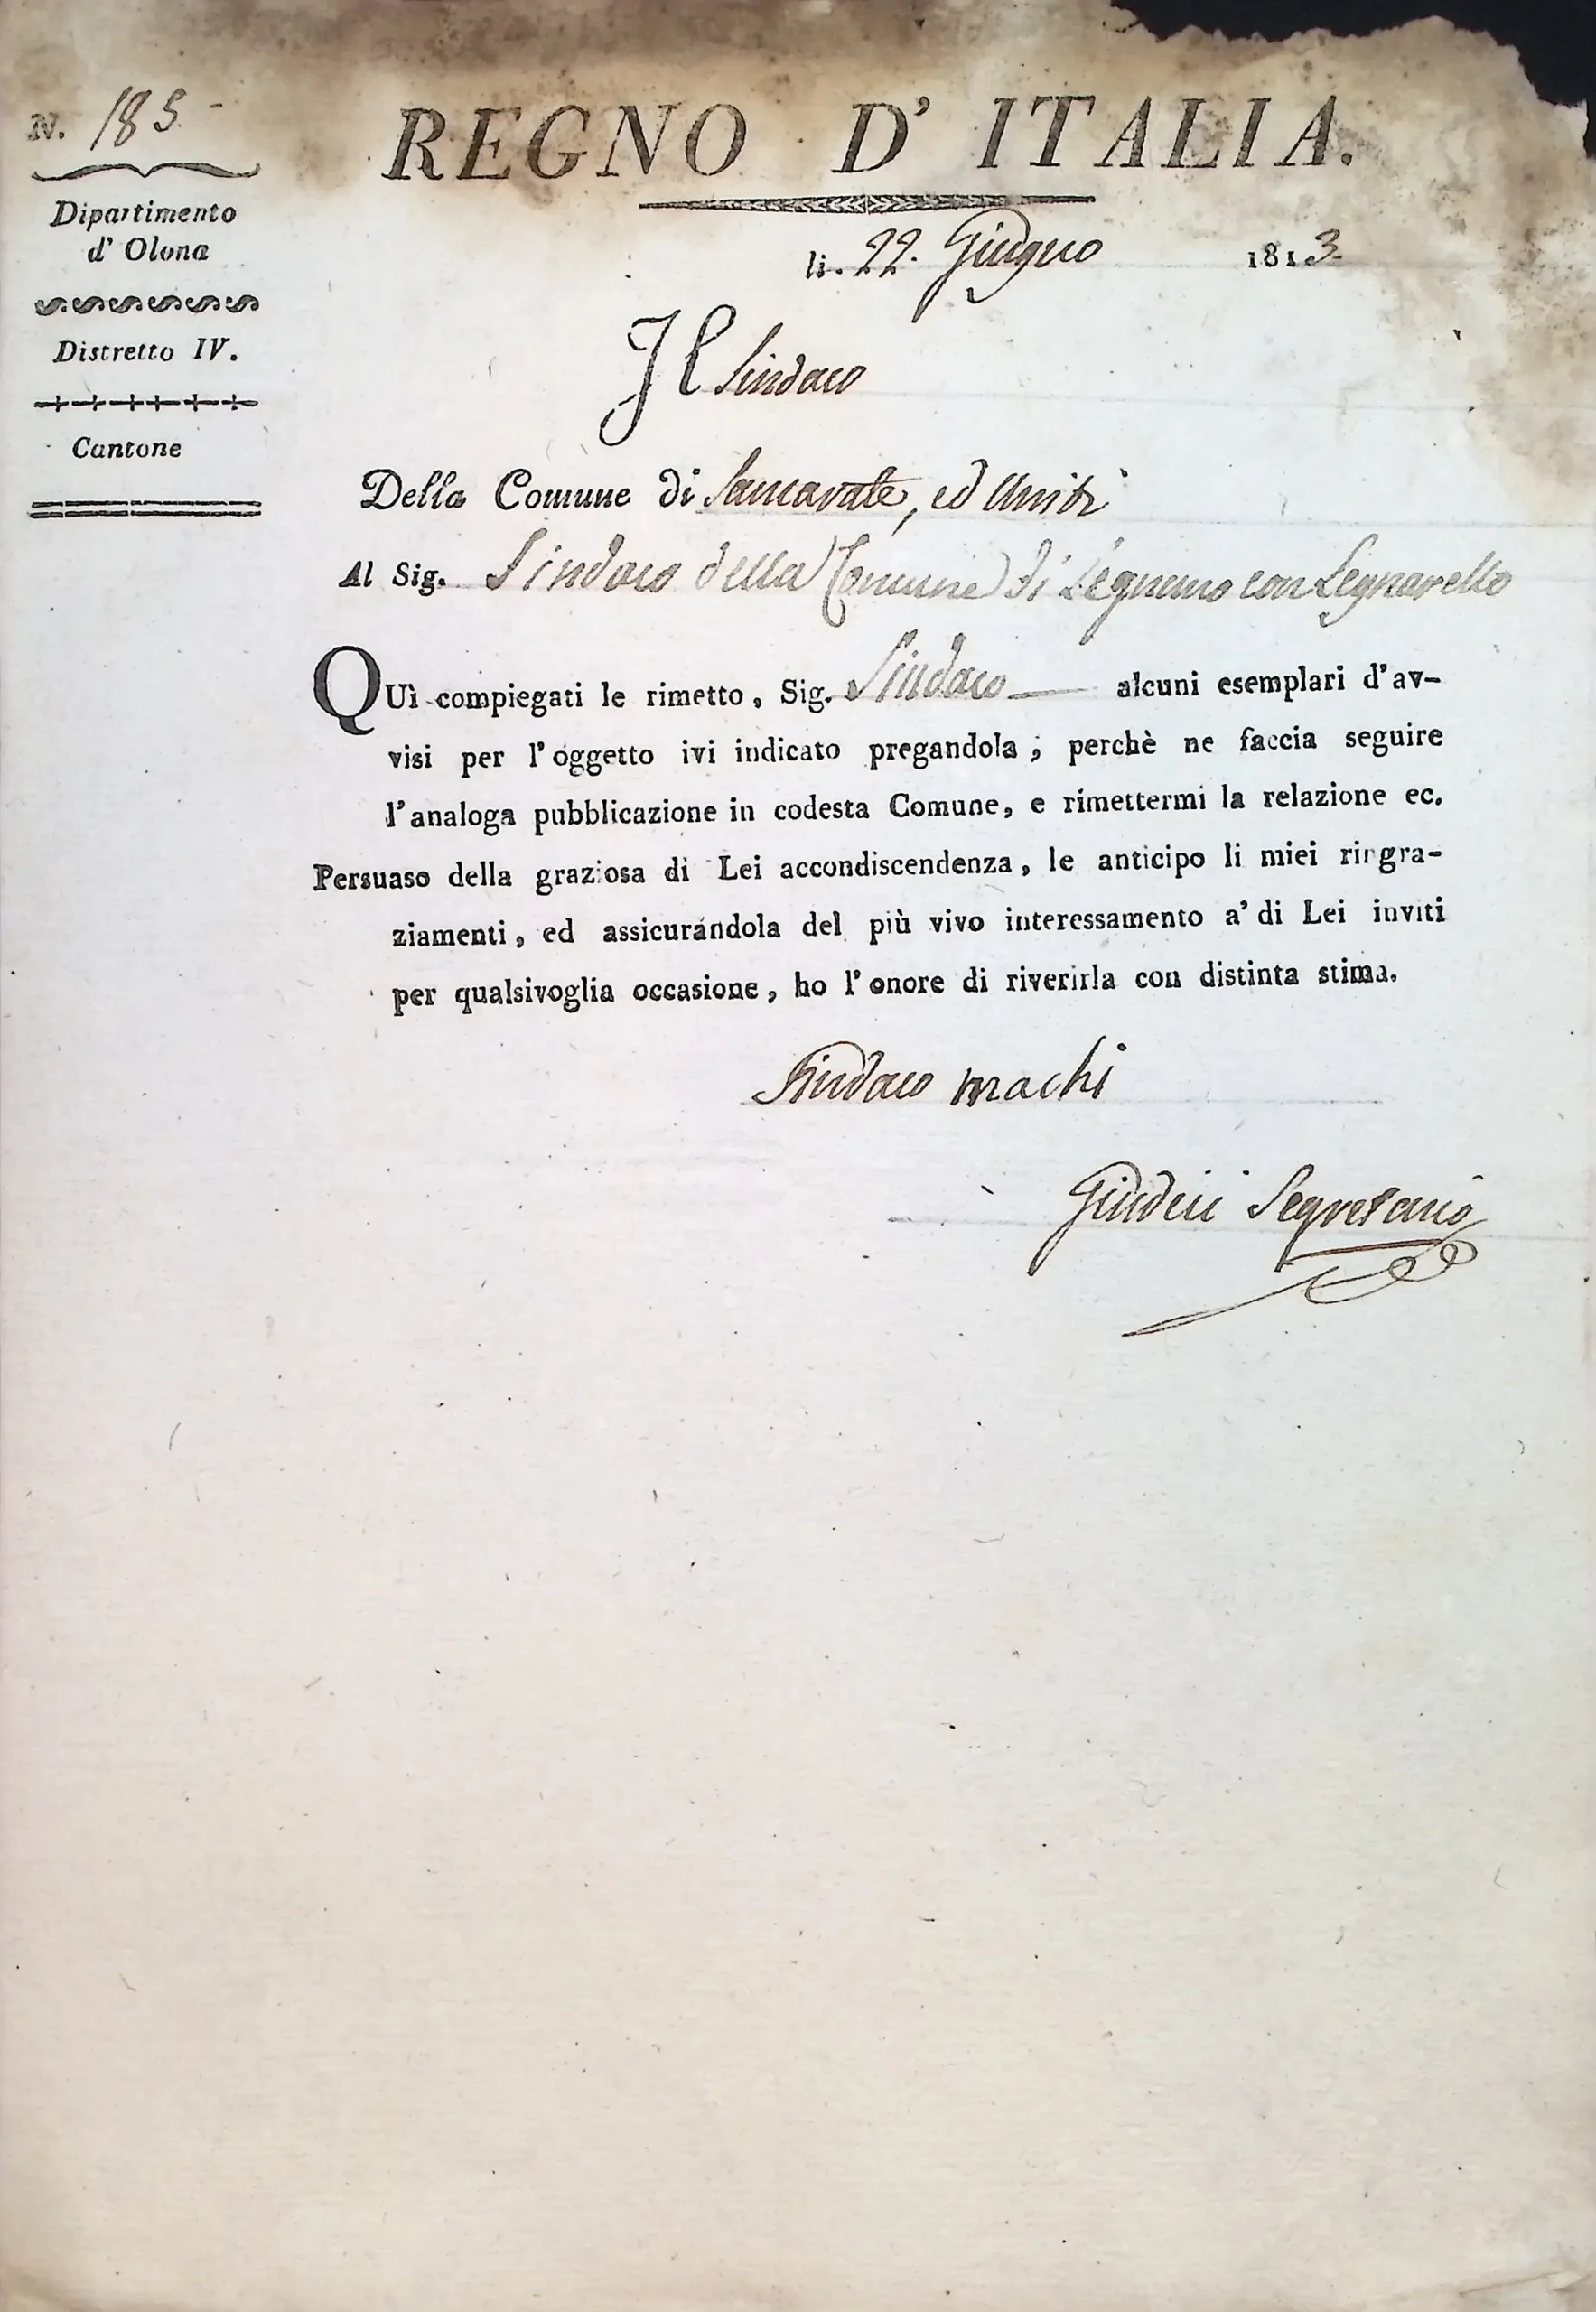 N. 185
REGNO D' ITALIA.
Dipartimento
d' Olona
Distretto IV.
Cantone
li. 22. Giugno 1813
Il Sindaco
Della Comune di ed Uniti
Al Sig. Sindaco della Comune di Legnano con Legnarello
QUì compiegati le rimetto, Sig. Sindaco alcuni esemplari d'av-
visi per l'oggetto ivi indicato pregandola; perchè ne faccia seguire
l'analoga pubblicazione in codesta Comune, e rimettermi la relazione ec.
Persuaso della graziosa di Lei accondiscendenza, le anticipo li miei ringra-
ziamenti, ed assicurándola del più vivo interessamento a' di Lei inviti
per qualsivoglia occasione, ho l'onore di riverirla con distinta stima.
Sindaco machi
Giudici Segretario